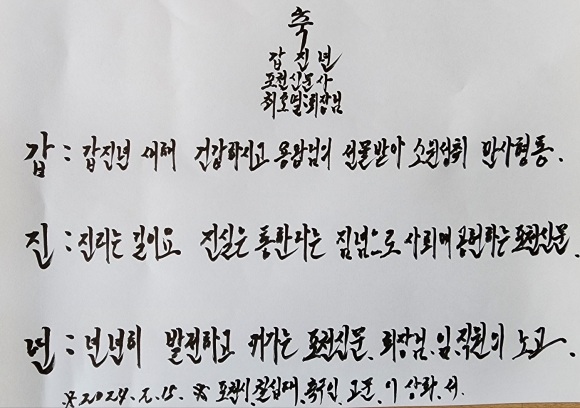 축
갑진년
포천신문사
최호열 회장님
갑 : 갑진년 새해 건강하시고 용왕님의 선물받아 소원성취 만사형통.
진 : 진리는 길이요 진실은 통한다는 집념으로 사회에 공헌하는 포천신문.
년 : 년년히 발전하고 커가는 포천신문. 회장님. 임.직원의 노고.
※2024.2.15. ※ 포천시 고문. 이 상화. 서.